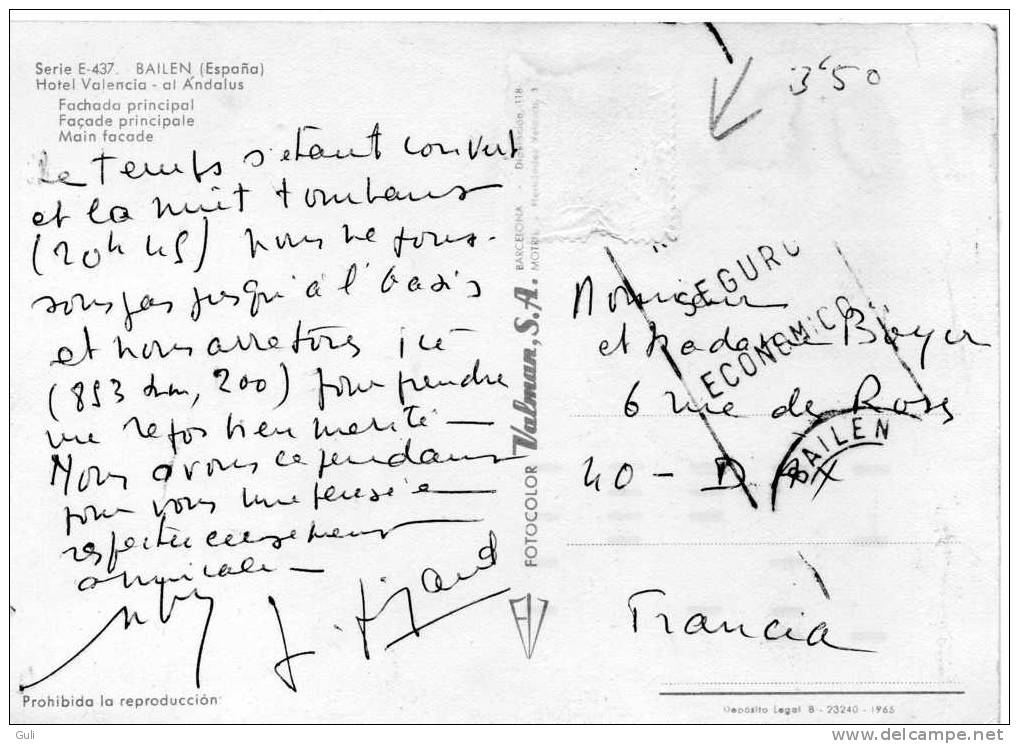 Serie E-437. - BAILEN (España)
Hotel Valencia - al Andalus
Fachada principal
Façade principale
Main facade
Le temps s'étant couvert
et la nuit tombant
(20h 45) nous ne pous-
sons pas jusqu'à l'oasis
et nous arretons ici
(893 km, 200) pour prendre
un repos bien merité —
Nous avons cependant
pour vous une pensée
respectueusement
amicale —
FOTOCOLOR Valman, S.A. BARCELONA
MOTRIL
3'50
SEGURO
ECONOMICO
BAILEN
Monsieur
et Madame Boyer
6 rue de Ross
40 - DAX
Francia
Prohibida la reproducción
Depósito Legal B - 23240 - 1965
Guli
delcampe.net